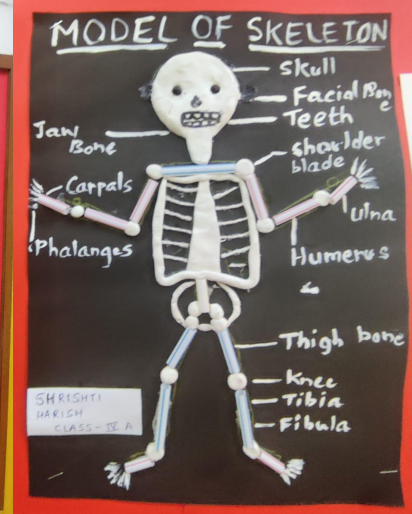 MODEL OF SKELETON
Skull
Facial Bon
e
Teeth
Jaw
Bone
shoulder
blade
Carpals
Ulna
Phalanges
Humerus
Thigh bone
Knee
Tibia
Fibula
SHRISHTI
HARISH
CLASS - IV A